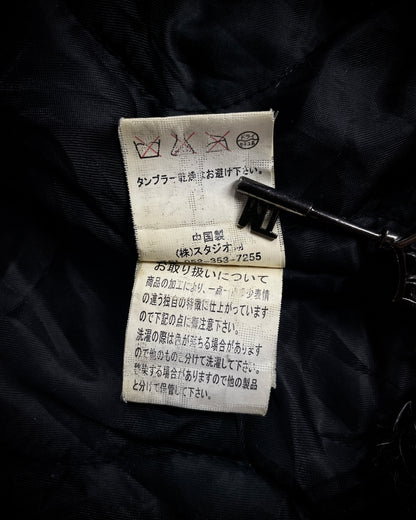 ドライ
タンブラー乾燥はお避け下さい。
中国製
(株)スタジオ
353-7255
お取り扱いについて
商品の加工により、一点一点の少表情
の違う独自の特徴に仕上がっています
ので下記の点に御注意下さい。
洗濯の際は色が落ちる場合があります
ので他のものと分けて洗濯して下さい。
移染する場合がありますので他の製品
と分けて保管して下さい。